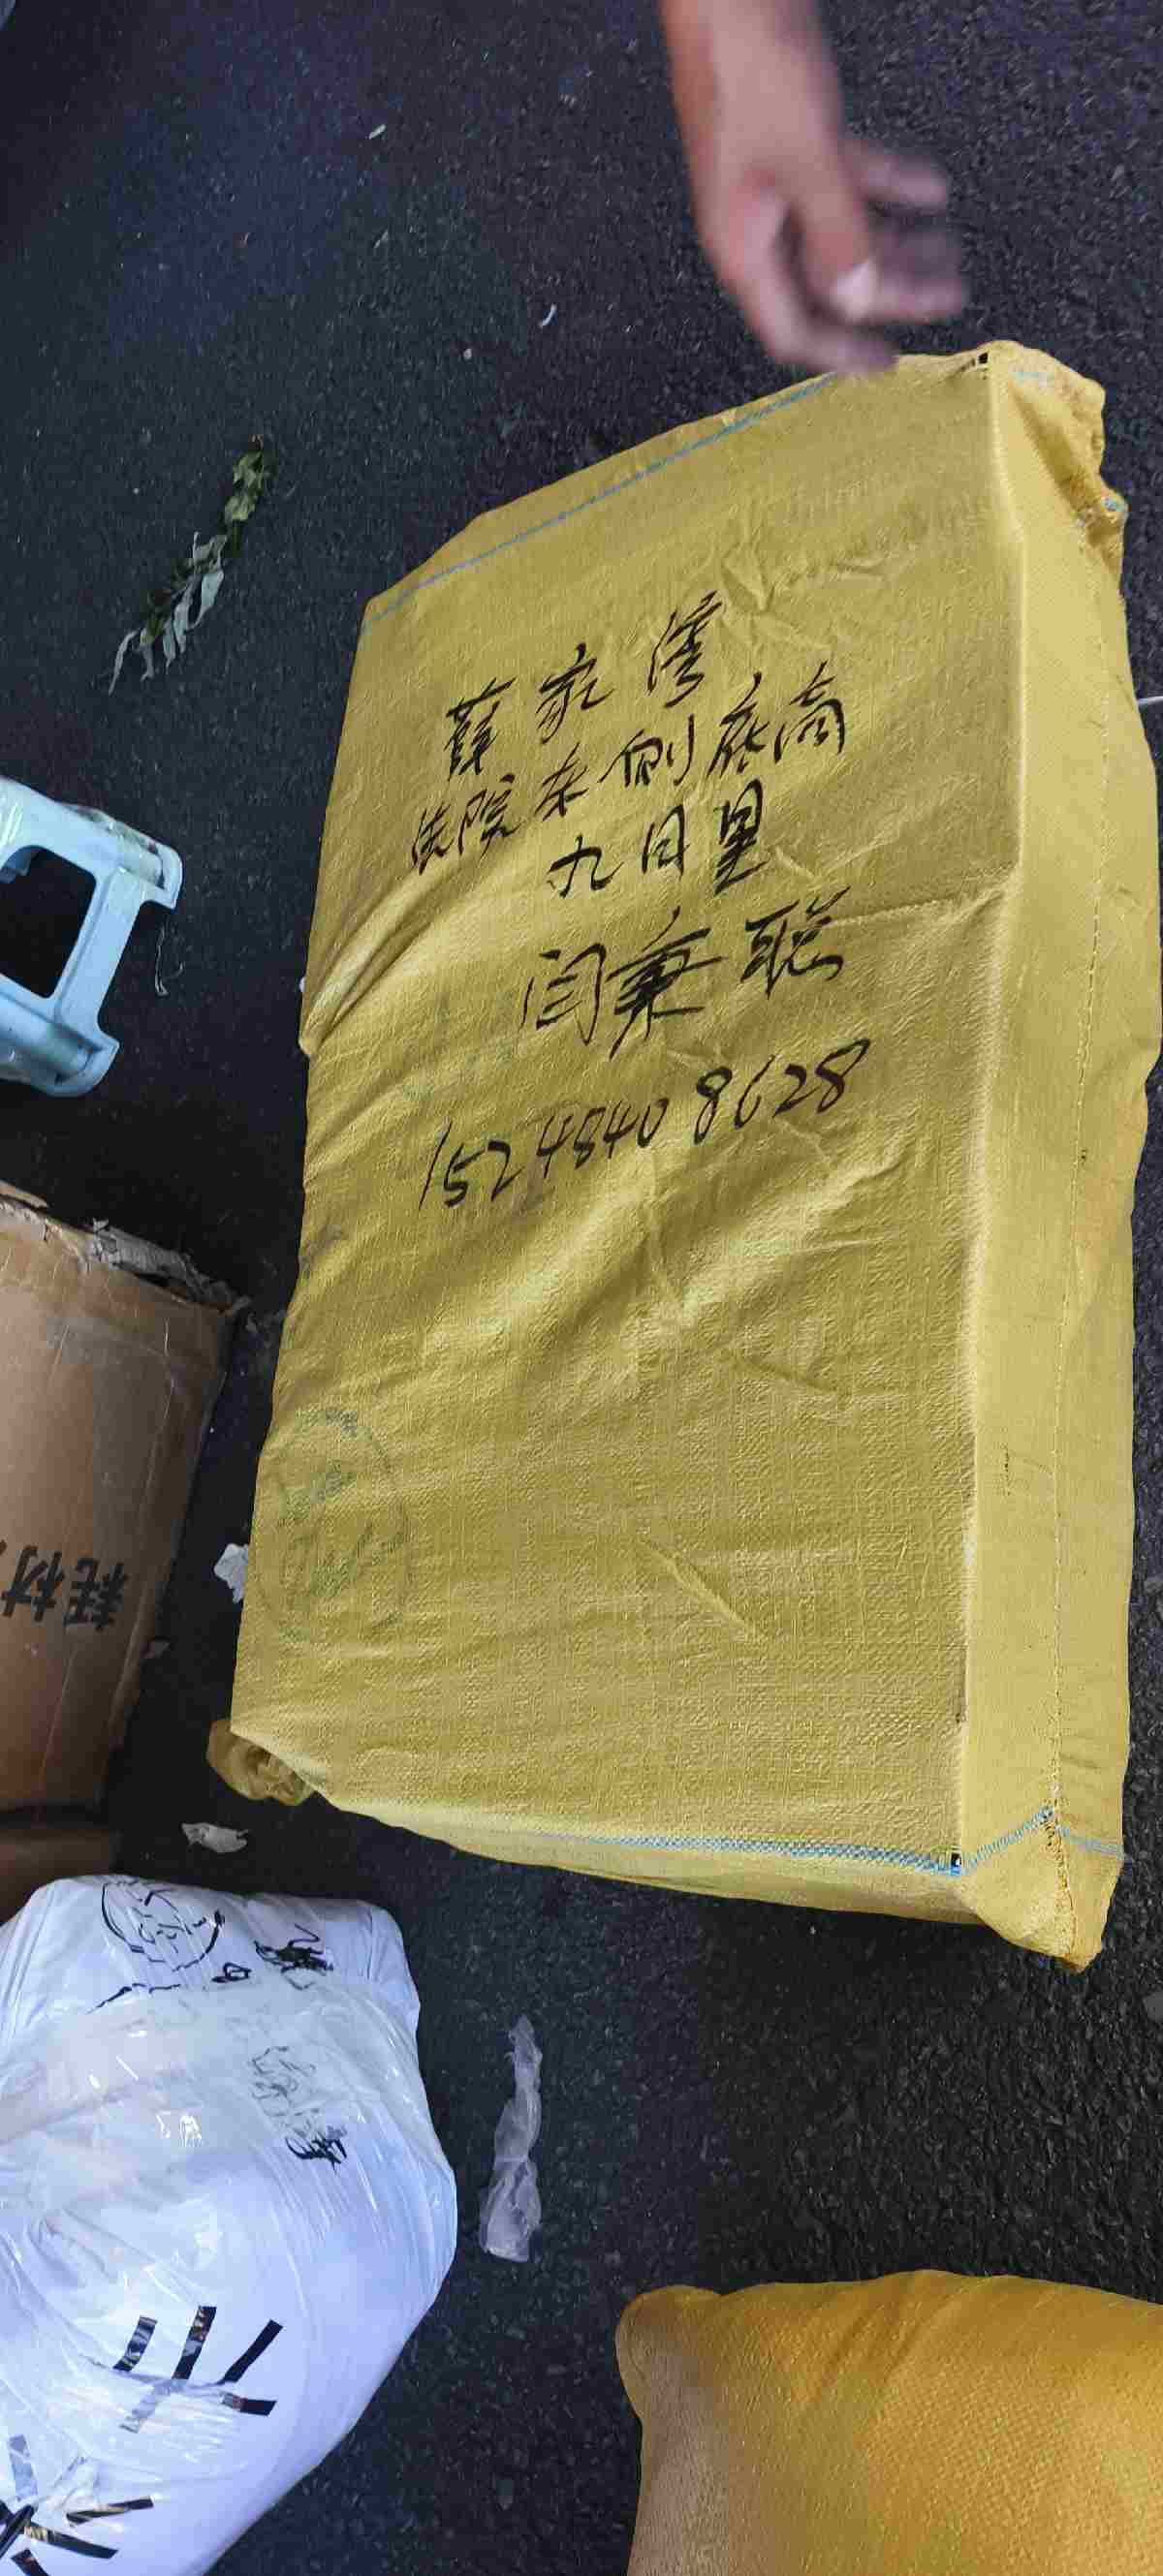 薛家湾
法院东侧底商
九日里
闫秉聪
15248408628
耗材